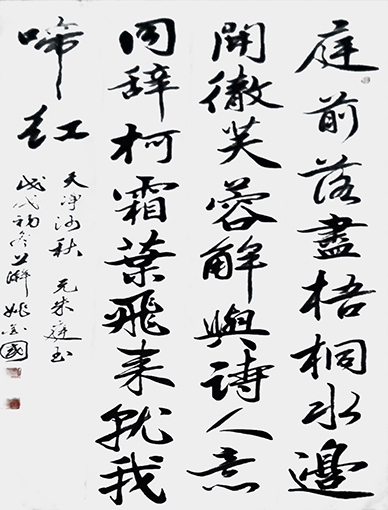 庭前落盡梧桐水邊
開徹芙蓉解與詩人意
同辞柯霜葉飛来就我
啼红
天净沙秋 元朱庭玉
戊戌初冬 姚國